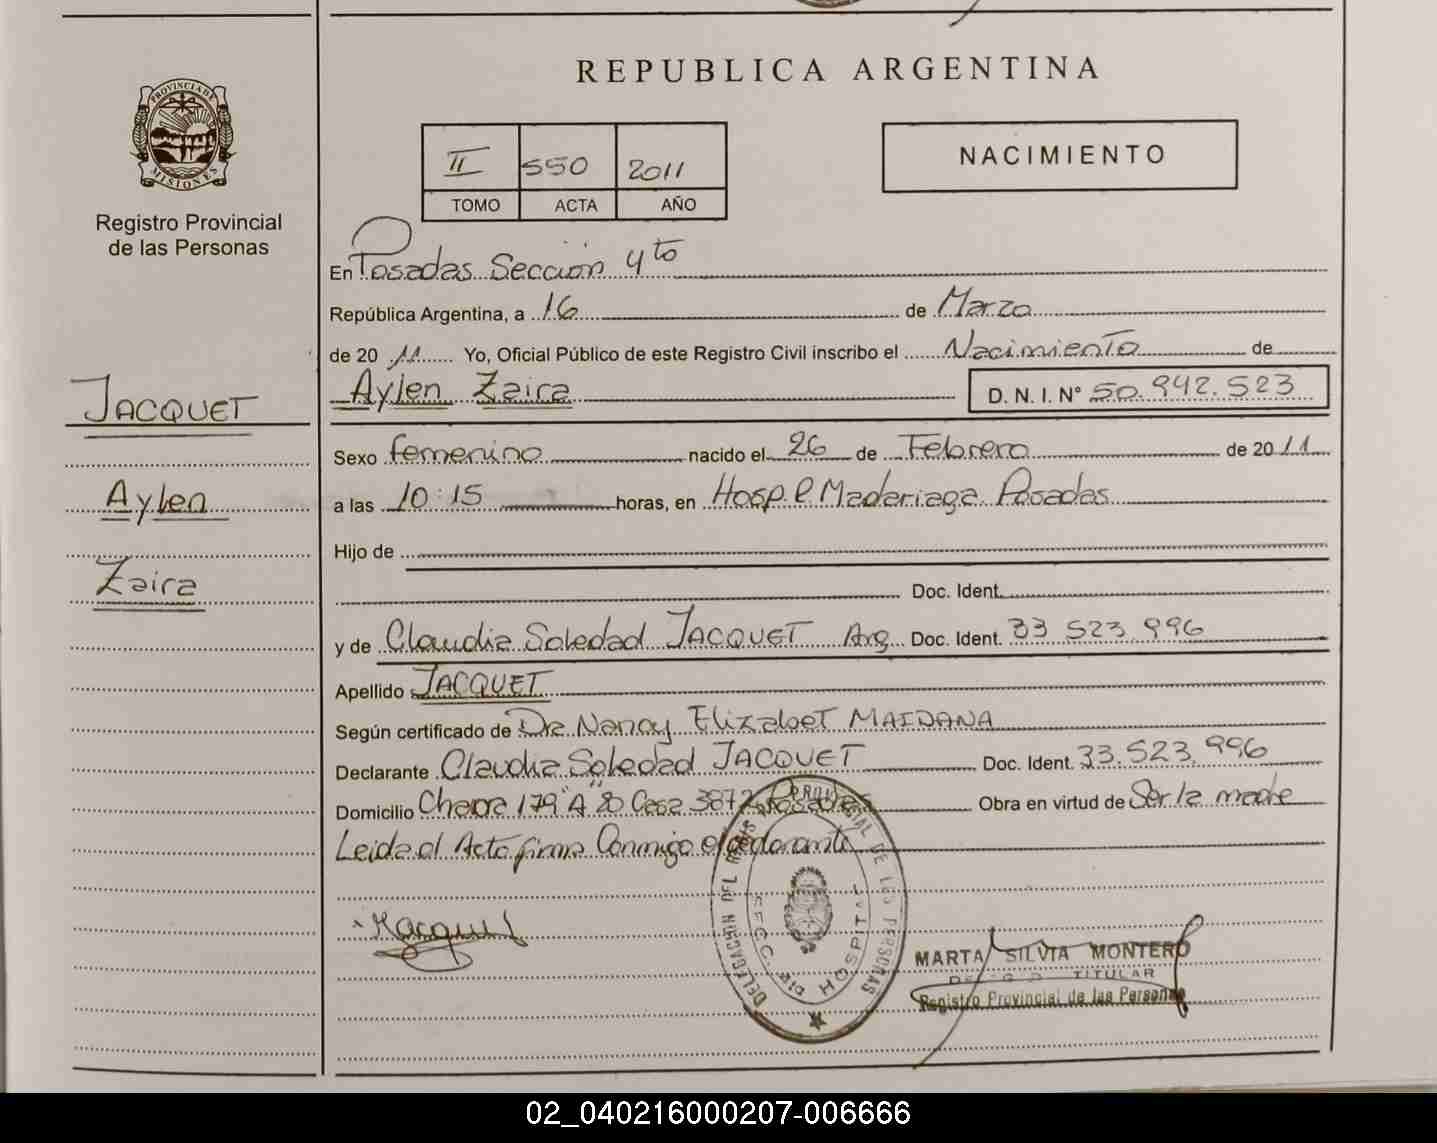 REPUBLICA ARGENTINA
PROVINCIA DE
MISIONES
Registro Provincial
de las Personas
II 550 2011
TOMO ACTA AÑO
NACIMIENTO
En Posadas Sección 4to
República Argentina, a 16 de Marzo
de 20 11 Yo, Oficial Público de este Registro Civil inscribo el Nacimiento de
Aylen Zaira D. N. I. Nº 50.942.523
JACQUET
Aylen
Zaira
Sexo femenino nacido el 26 de Febrero de 20 11
a las 10:15 horas, en Hosp. R. Madariaga Posadas
Hijo de
Doc. Ident.
y de Claudia Soledad JACQUET Arg Doc. Ident. 33 523 996
Apellido JACQUET
Según certificado de Dra Nancy Elizabet MAIDANA
Declarante Claudia Soledad JACQUET Doc. Ident. 33.523.996
Domicilio Chacra 179 "A" Casa 3872 Posadas Obra en virtud de Ser la madre
Leida el Acta firma Conmigo el declarante
DELEGACION DEL REGIS PROVINCIAL DE LAS PERSONAS
SECC. 4ta HOSPITAL
MARTA SILVIA MONTERO
TITULAR
Registro Provincial de las Personas
02_040216000207-006666